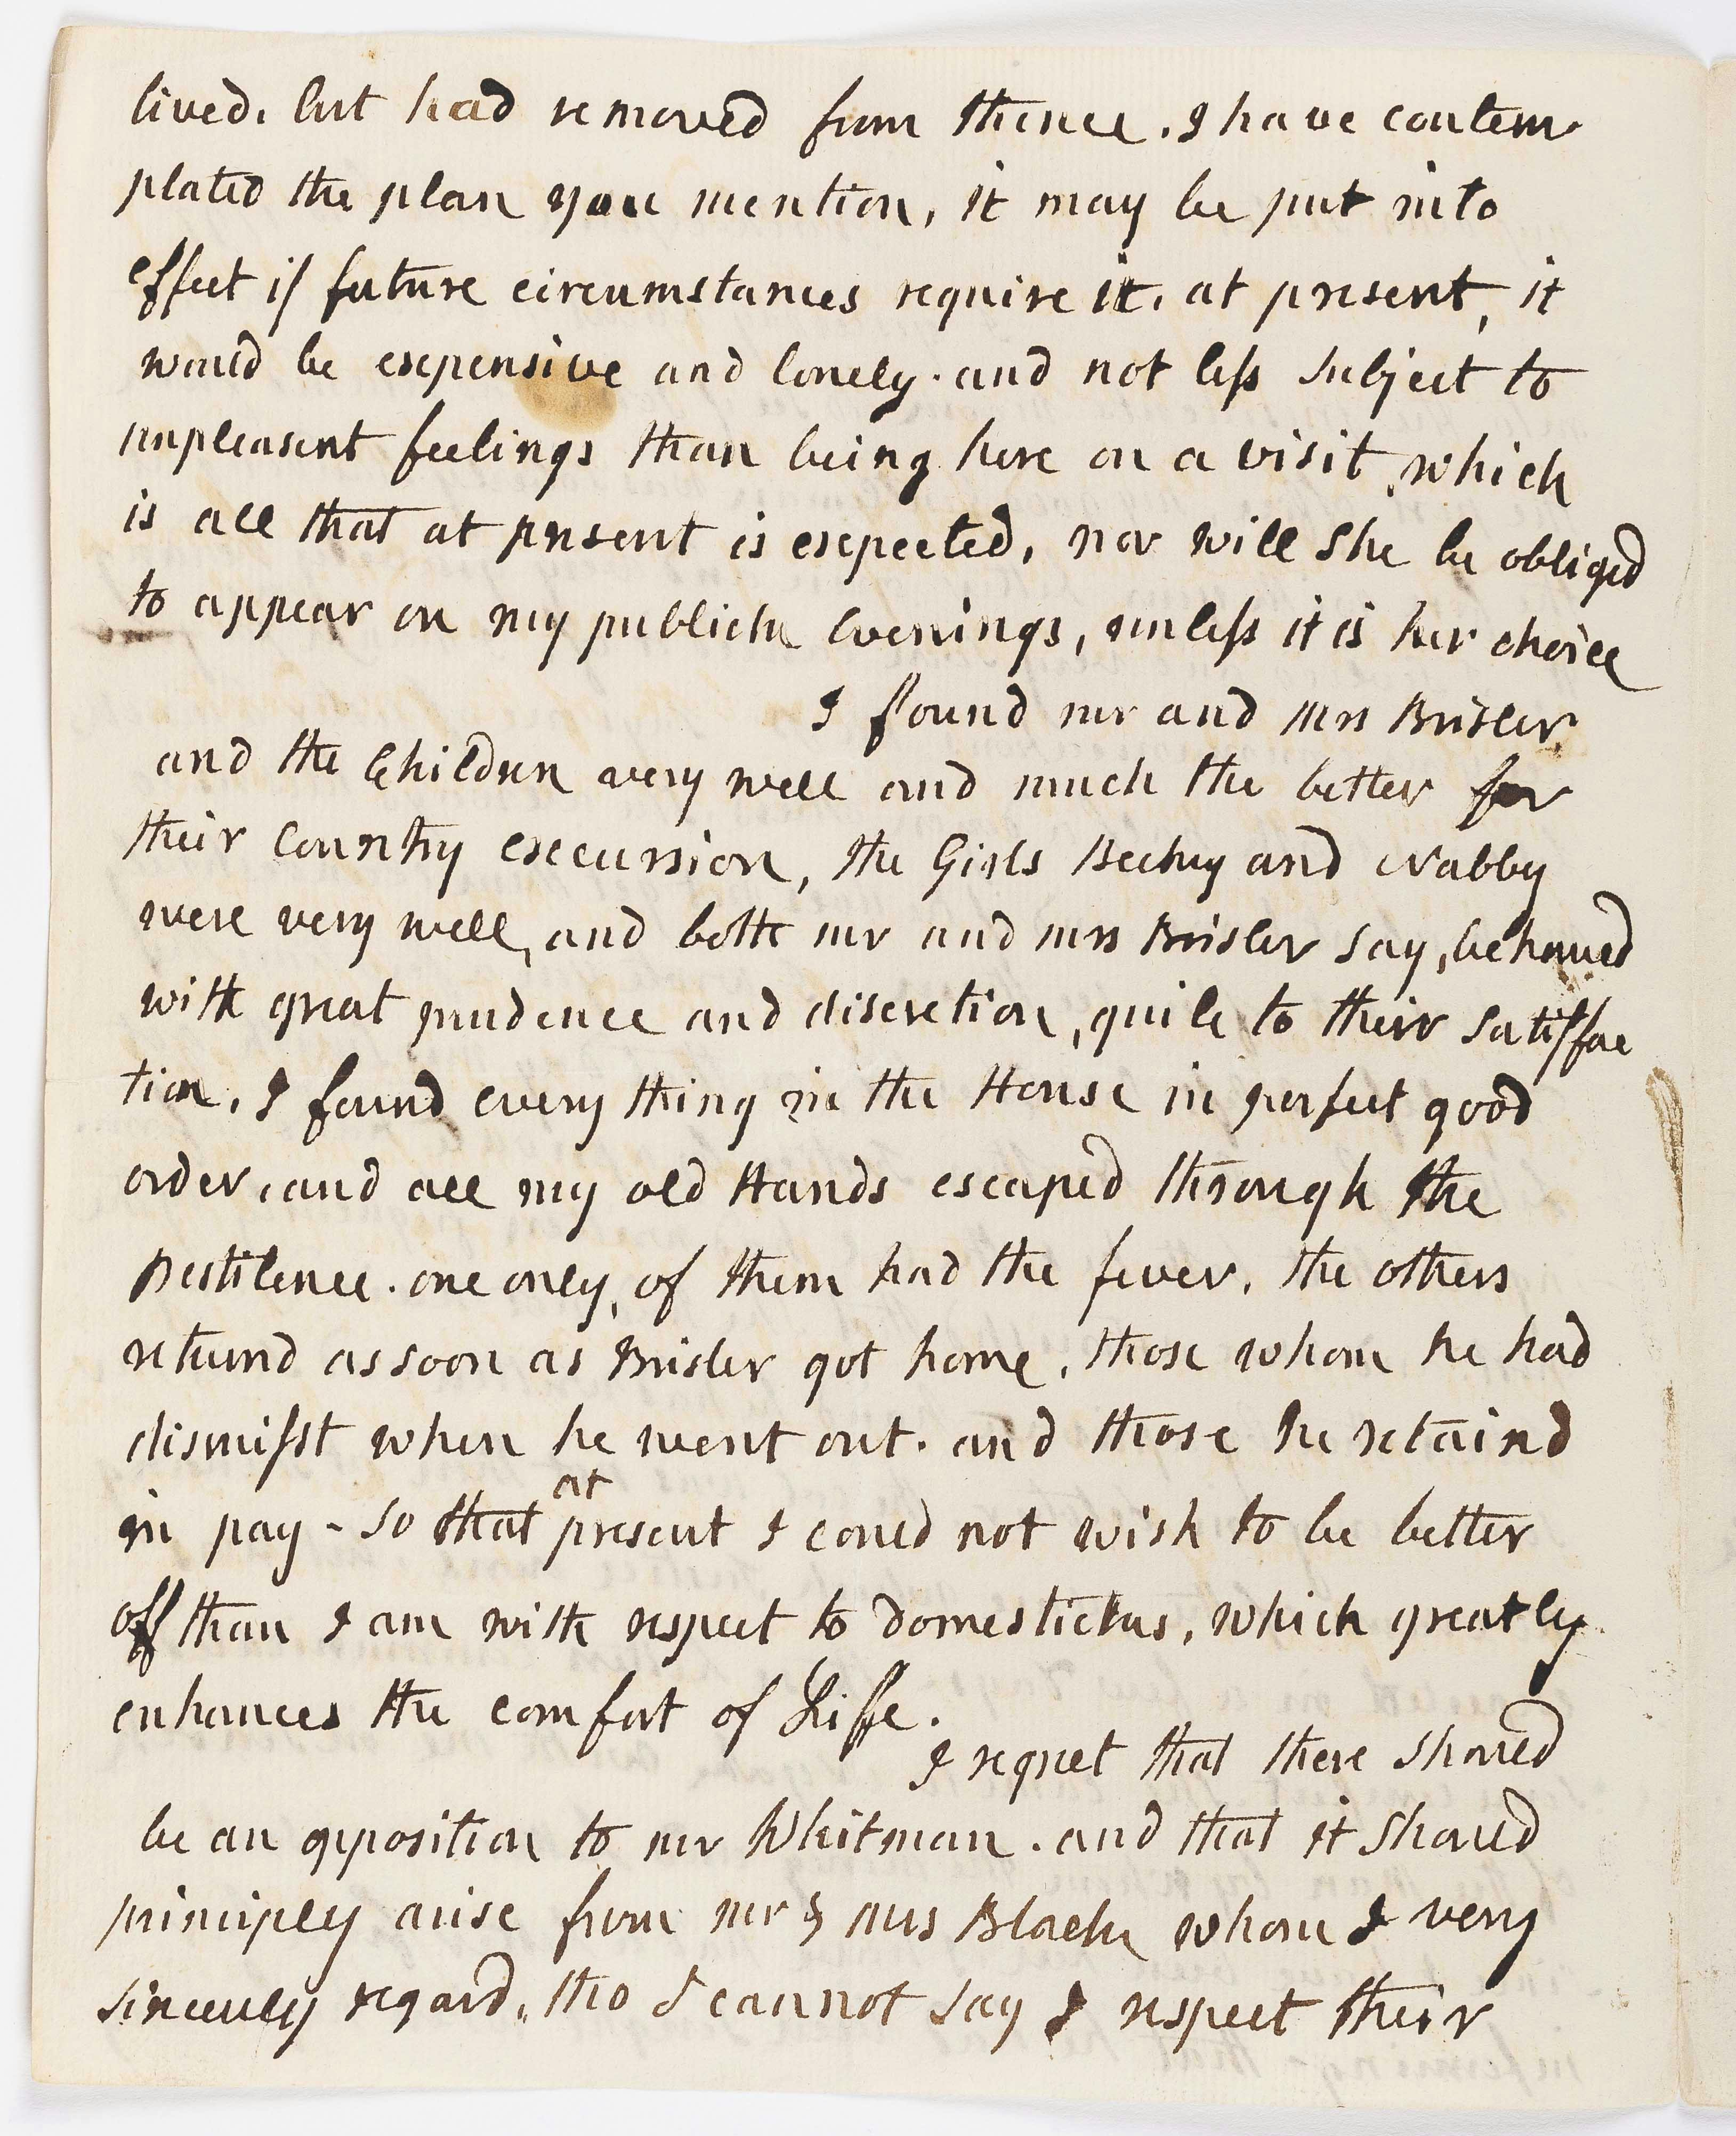 lived. but had removed from thence. I have contem
plated the plan you mention, it may be put into
effect if future circumstances require it. at present, it
would be expensive and lonely. and not less subject to
unpleasent feelings than being here on a visit, which
is all that at present is expected, nor will she be obliged
to appear on my publick Evenings, unless it is her choice
I found mr and mrs Brisler
and the Children very well and much the better for
their Country excursion, the Girls Beckey and Nabby
were very well, and both mr and mrs Brisler say, behaved
with great prudence and discretion, quite to their satisfac
tion. I found every thing in the House in perfect good
order, and all my old Hands escaped through the
Pestilence. one only, of them had the fever. the others
returnd as soon as Brisler got home, those whom he had
dismisst when he went out. and those he retaind
in pay - so that at present I could not wish to be better
off than I am with respect to domesticks, which greatly
enhances the comfort of Life.
I regret that there should
be an opposition to mr Whitman. and that it should
principly arise from mr & mrs Black whom I very
sincerely regard, tho I cannot say I respect their